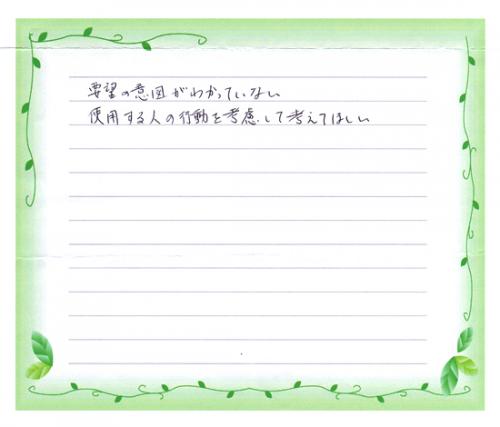 要望の意図がわかっていない
使用する人の行動を考慮して考えてほしい